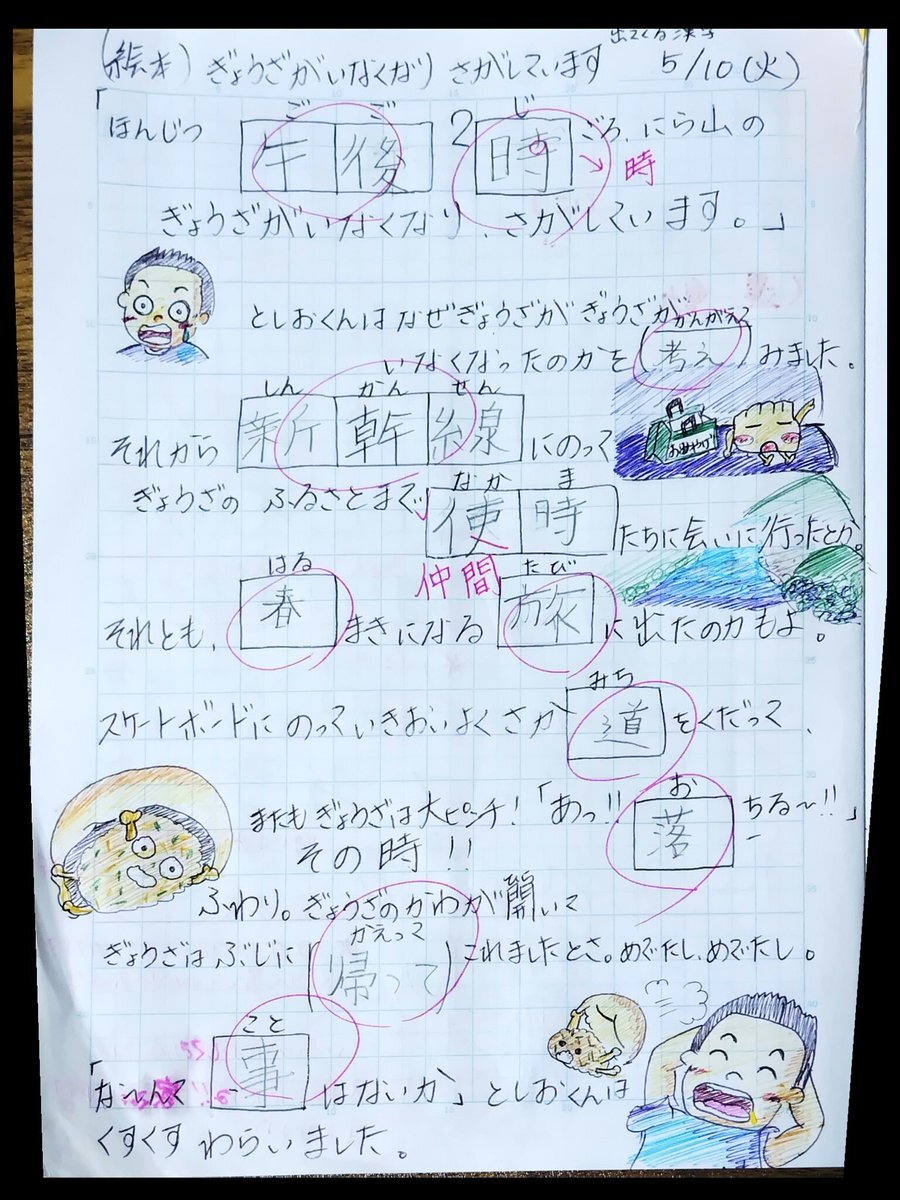 出てくる漢字
(絵本) ぎょうざがいなくなり さがしています 5/10(火)
ごご じ
「ほんじつ 午後 2 時 ごろ、にら山の
時
ぎょうざがいなくなり、さがしています。」
としおくんはなぜぎょうざがぎょうざが
かんがえて
いなくなったのかを(考え)みました。
しん かん せん
それから 新幹線 にのって
おみやげ
なか ま
ぎょうざの ふるさとまで 使時 たちに会いに行ったとか。
仲間
はる たび
それとも、春 まきになる 旅 に出たのかもよ。
みち
スケートボードにのっていきおいよくさか 道 をくだって、
お
またもぎょうざは大ピンチ!「あっ!! 落 ちる〜!!」
その時!!
ふわり。ぎょうざのかわが開いて
かえって
ぎょうざはぶじに(帰って)これましたとさ。めでたし、めでたし。
こと
「なーんて 事 はないか」としおくんは
くすくすわらいました。